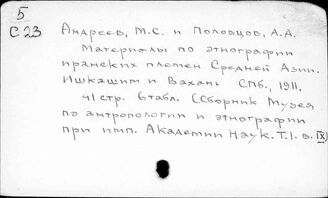 5
С 23
Андреев, М.С. и Половцов, А.А.
Материалы по этнографии
иранских племен Средней Азии.
Ишкашим и Вахань СПб., 1911.
41 стр. 6 табл. (Сборник Музея
по антропологии и этнографии
при имп. Академии Наук. Т.I. в. IX)